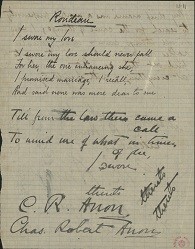 Rondeau
I swore my love
I swore my love should never fall
For her, the one enhancing she
I promised marriage, I recall,
And said none was more dear to me
Till from the law there came a
call
To remind me of what in
of me
I swore.
thereto
C. R. Anon
thereto
thereto
Chas. Robert Anon